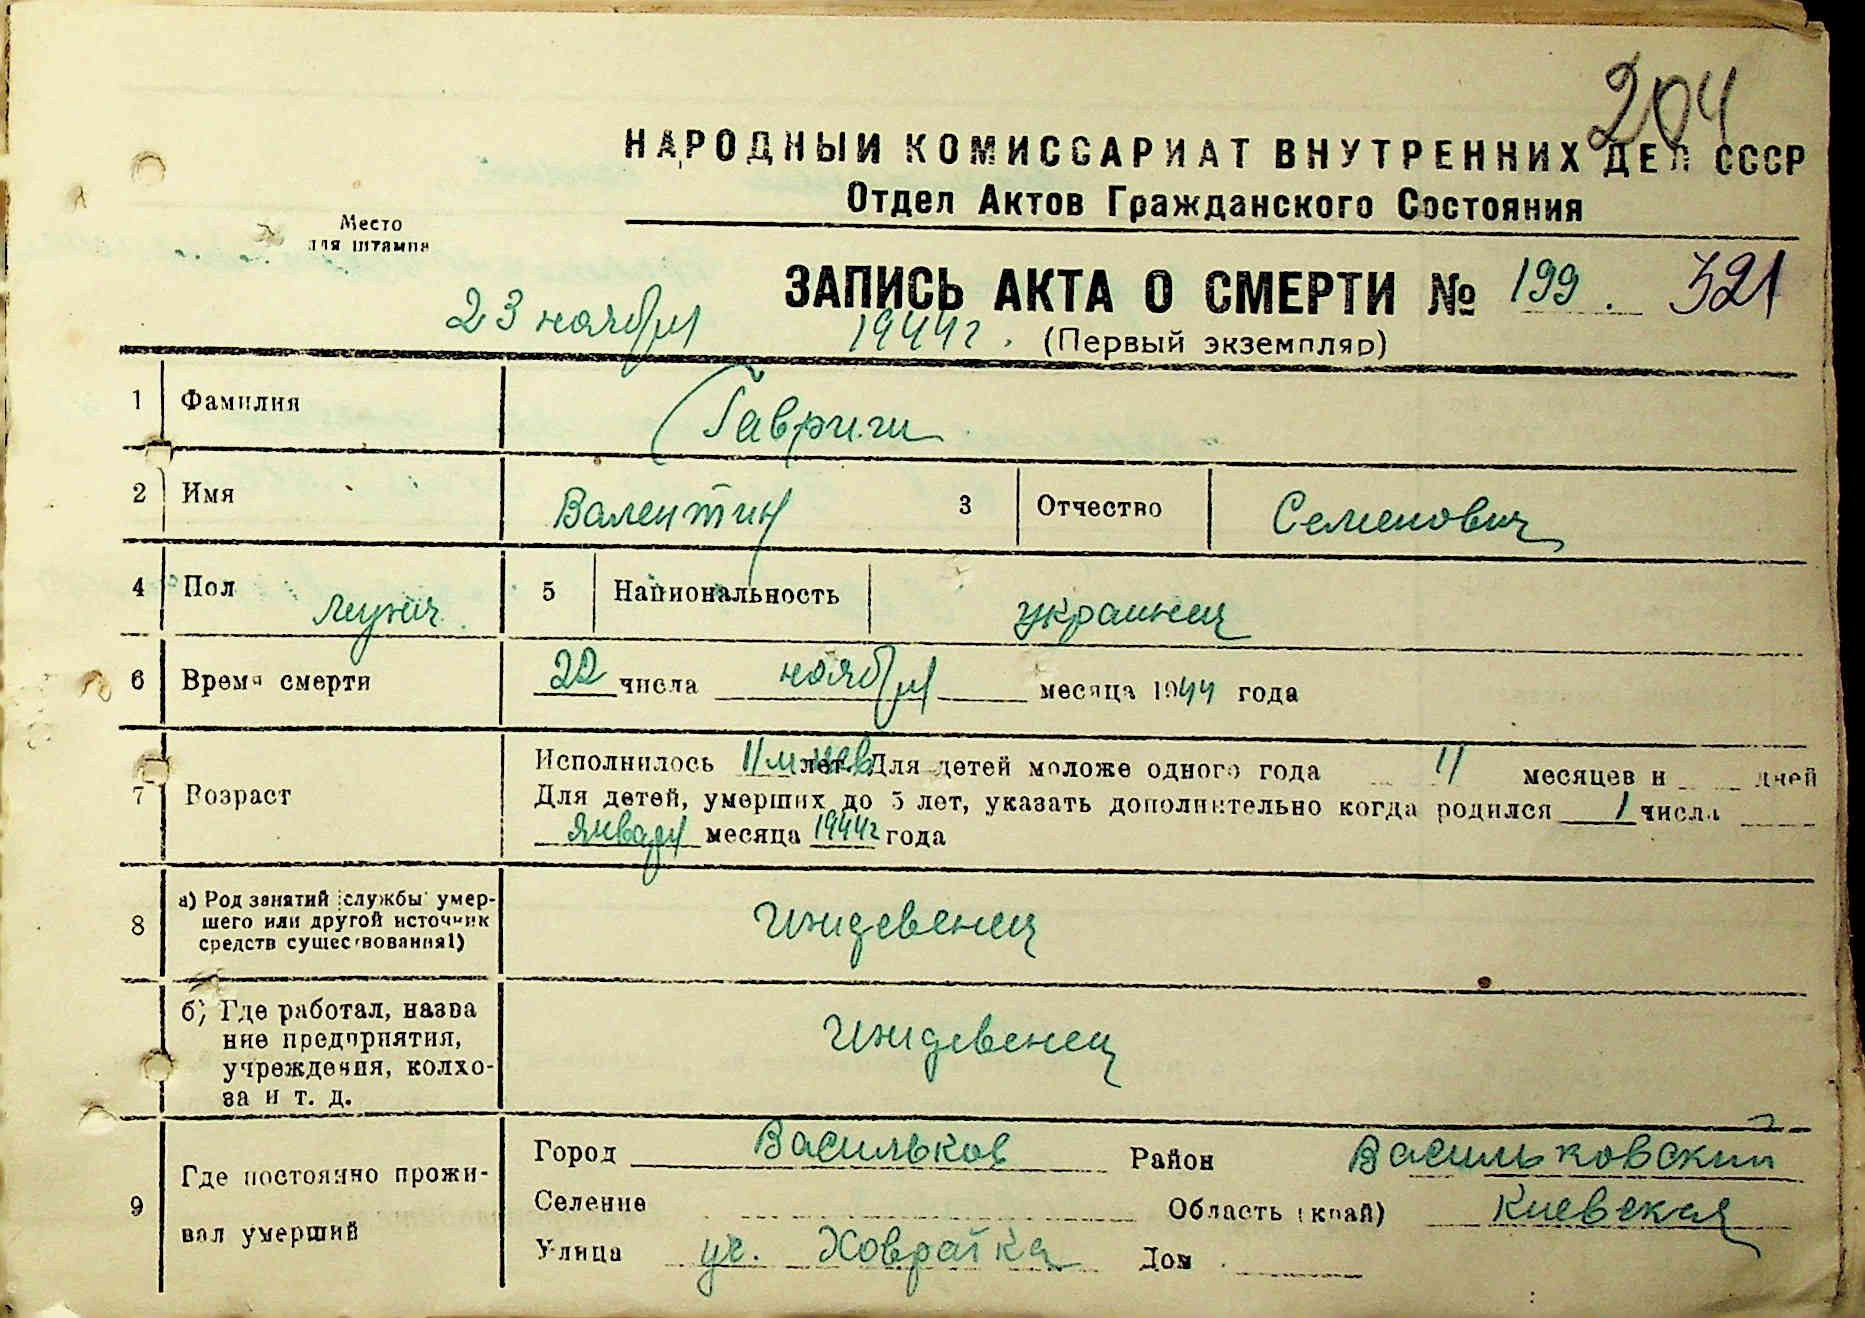 204
НАРОДНЫЙ КОМИССАРИАТ ВНУТРЕННИХ ДЕЛ СССР
Отдел Актов Гражданского Состояния
Место
для штампа
ЗАПИСЬ АКТА О СМЕРТИ № 199. 321
23 ноября 1944 г. (Первый экземпляр)
1 Фамилия
2 Имя Валентин 3 Отчество Семенович
4 Пол мужч. 5 Национальность украинец
6 Время смерти 22 числа ноября месяца 1944 года
Исполнилось 11 м-цев лет. Для детей моложе одного года 11 месяцев и дней
7 Возраст Для детей, умерших до 5 лет, указать дополнительно когда родился 1 числа
января месяца 1944 г года
8 а) Род занятий (службы) умер-
шего или другой источник
средств существования1) Иждевенец
б) Где работал, назва
ние предприятия,
учреждения, колхо-
за и т. д. Иждевенец
9 Где постоянно прожи-
вал умерший
Город Васильков Район Васильковский
Селение Область (край) Киевская
Улица ул. Дом